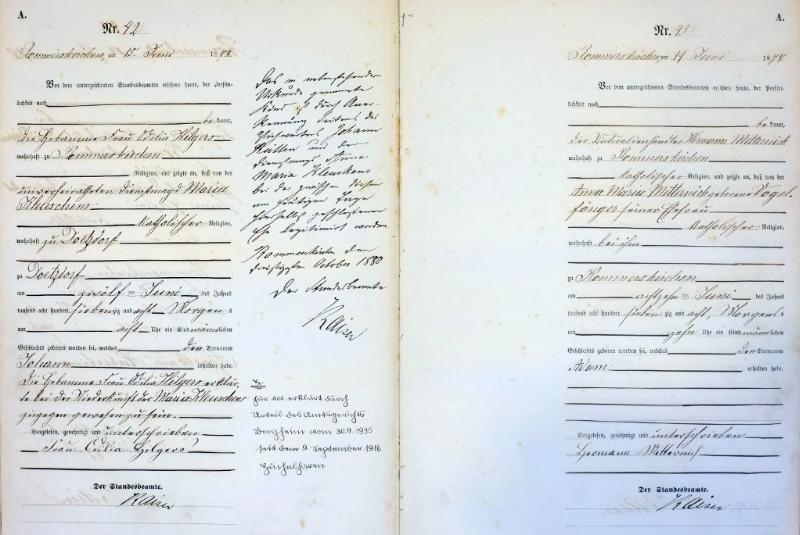 A.
Nr. 42
Rommerskirchen, am 15. Juni 1878
Vor dem unterzeichneten Standesbeamten erschien heute, der Persön-
lichkeit nach
be kannt,
die Hebamme Frau Odilia Hilgers
wohnhaft zu Rommerskirchen
Religion, und zeigte an, daß von der
unverheiratheten Dienstmagd Maria
Kleuschens
katholischer Religion,
wohnhaft zu
zu
am zwölf ten Juni des Jahres
tausend acht hundert siebenzig und acht Morgens
um acht Uhr ein Kind männlichen
Geschlechts geboren worden sei, welches den Vornamen
Johann erhalten habe.
Die Hebamme Frau Odilia Hilgers erklär-
te bei der Niederkunft der Maria Kleuschens
zugegen gewesen zu sein.
Vorgelesen, genehmigt und unterschrieben
Frau Odilia Hilgers
Der Standesbeamte.
Kaiser
Das in nebenstehender
Urkunde genannte
Kind ist durch Aner-
kennung seitens des
Johann
Rütten und der
Dienstmagd Anna
Maria Kleuschens
bei der zwischen diesen
am heutigen Tage
hierselbst geschlossenen
Ehe legitimirt worden
Rommerskirchen den
dreißigsten October 1880
Der Standesbeamte
Kaiser
für tot erklärt durch
Urteil des Amtsgerichts
Bergheim vom 30.9.1935
seit dem 9 September 1916
A.
Nr. 43
Rommerskirchen, am 19 Juni 1878
Vor dem unterzeichneten Standesbeamten erschien heute, der Persön-
lichkeit nach
be kannt,
der Hermann Metternich
wohnhaft zu Rommerskirchen
katholischer Religion, und zeigte an, daß von der
Anna Maria Metternich geborene Vogel-
fänger seiner Ehefrau
katholischer Religion,
wohnhaft bei ihm
zu Rommerskirchen
am achtzehn ten Juni des Jahres
tausend acht hundert siebenzig und acht, Morgens
um zehn Uhr ein Kind männlichen
Geschlechts geboren worden sei, welches den Vornamen
Adam erhalten habe.
Vorgelesen, genehmigt und unterschrieben
Hermann Metternich
Der Standesbeamte.
Kaiser